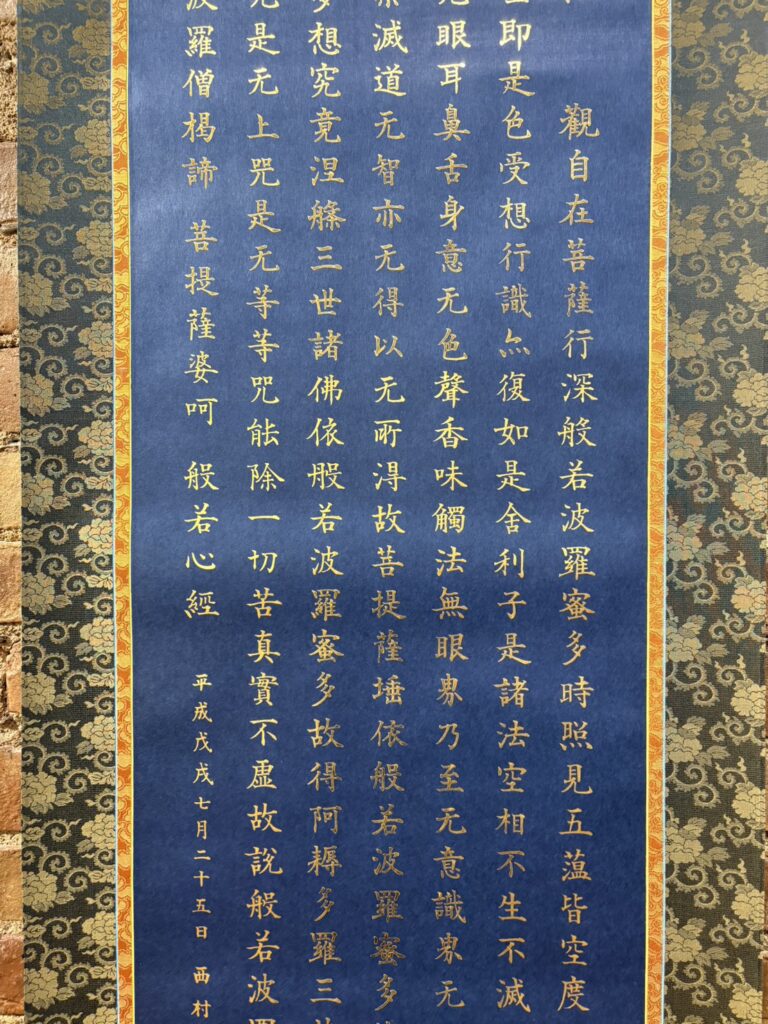 觀自在菩薩行深般若波羅蜜多時照見五薀皆空度
即是色受想行識亦復如是舍利子是諸法空相不生不滅
无眼耳鼻舌身意无色聲香味觸法無眼界乃至无意識界无
滅道无智亦无得以无所得故菩提薩埵依般若波羅蜜多
想究竟涅槃三世諸佛依般若波羅蜜多故得阿耨多羅三
是无上咒是无等等咒能除一切苦真實不虛故說般若波
波羅僧揭諦 菩提薩婆呵 般若心經
平成戊戌七月二十五日 西村